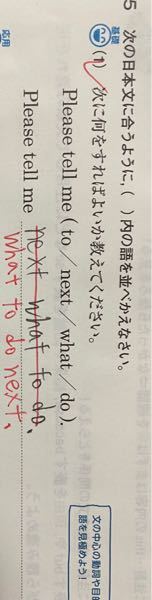 5 次の日本文に合うように,( )内の語を並べかえなさい。
基礎
(1) 次に何をすればよいか教えてください。
Please tell me ( to / next / what / do ).
Please tell me next what to do.
what to do next.
文の中心の動詞や目的
語を見極めよう!
応用